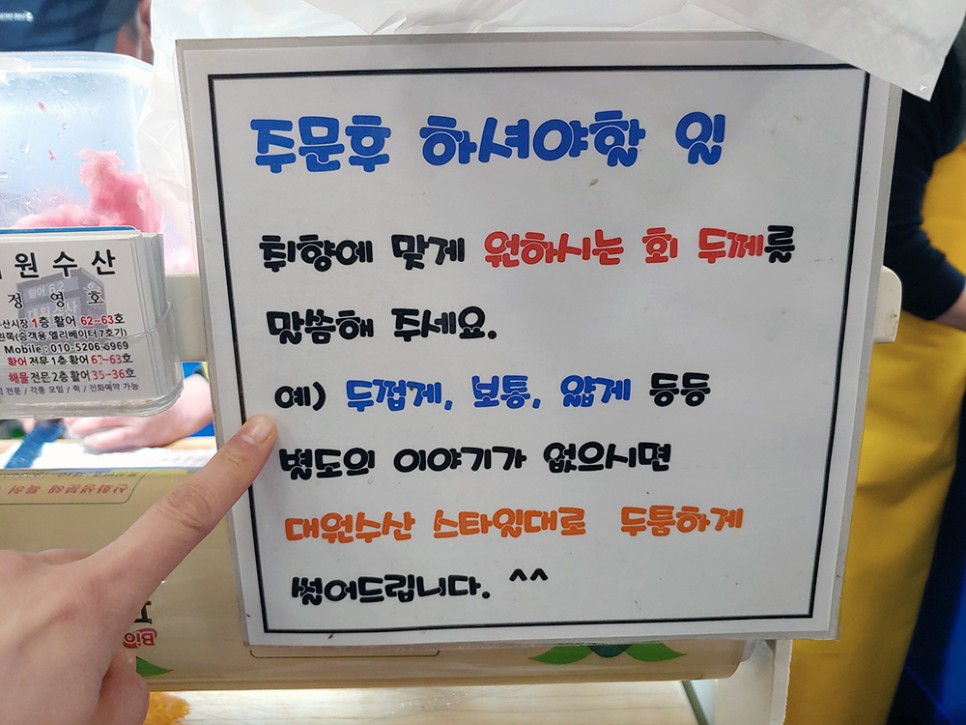 주문후 하셔야할 일
취향에 맞게 원하시는 회 두께를
말씀해 주세요.
예) 두껍게, 보통, 얇게 등등
별도의 이야기가 없으시면
대원수산 스타일대로 두툼하게
썰어드립니다. ^^
원수산
정영호
산시장 1층 활어 62~63호
왼쪽(승객용 엘리베이터 7호기)
Mobile : 010-5206-6969
활어 전문 1층 활어 62~63호
해물 전문 2층 활어 35~36호
전문 / 각종 모임 / 퀵 / 전화예약 가능
산화생분해 특허
Bio